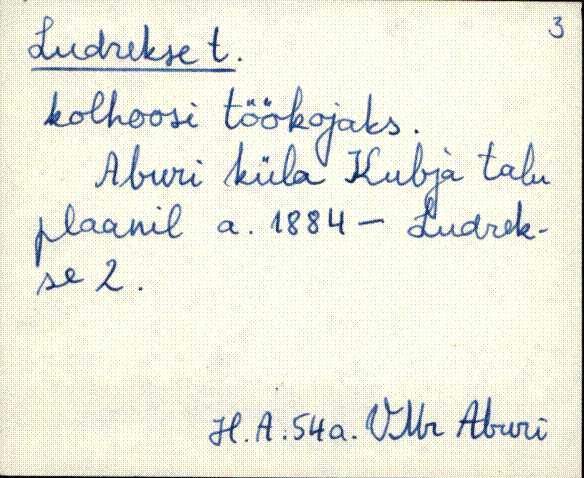 3
Ludrekse t.
kolhoosi töökojaks.
Aburi küla Kubja talu
plaanil a. 1884 – Ludrek-
se 2.
H.A. 54a. VMr Aburi